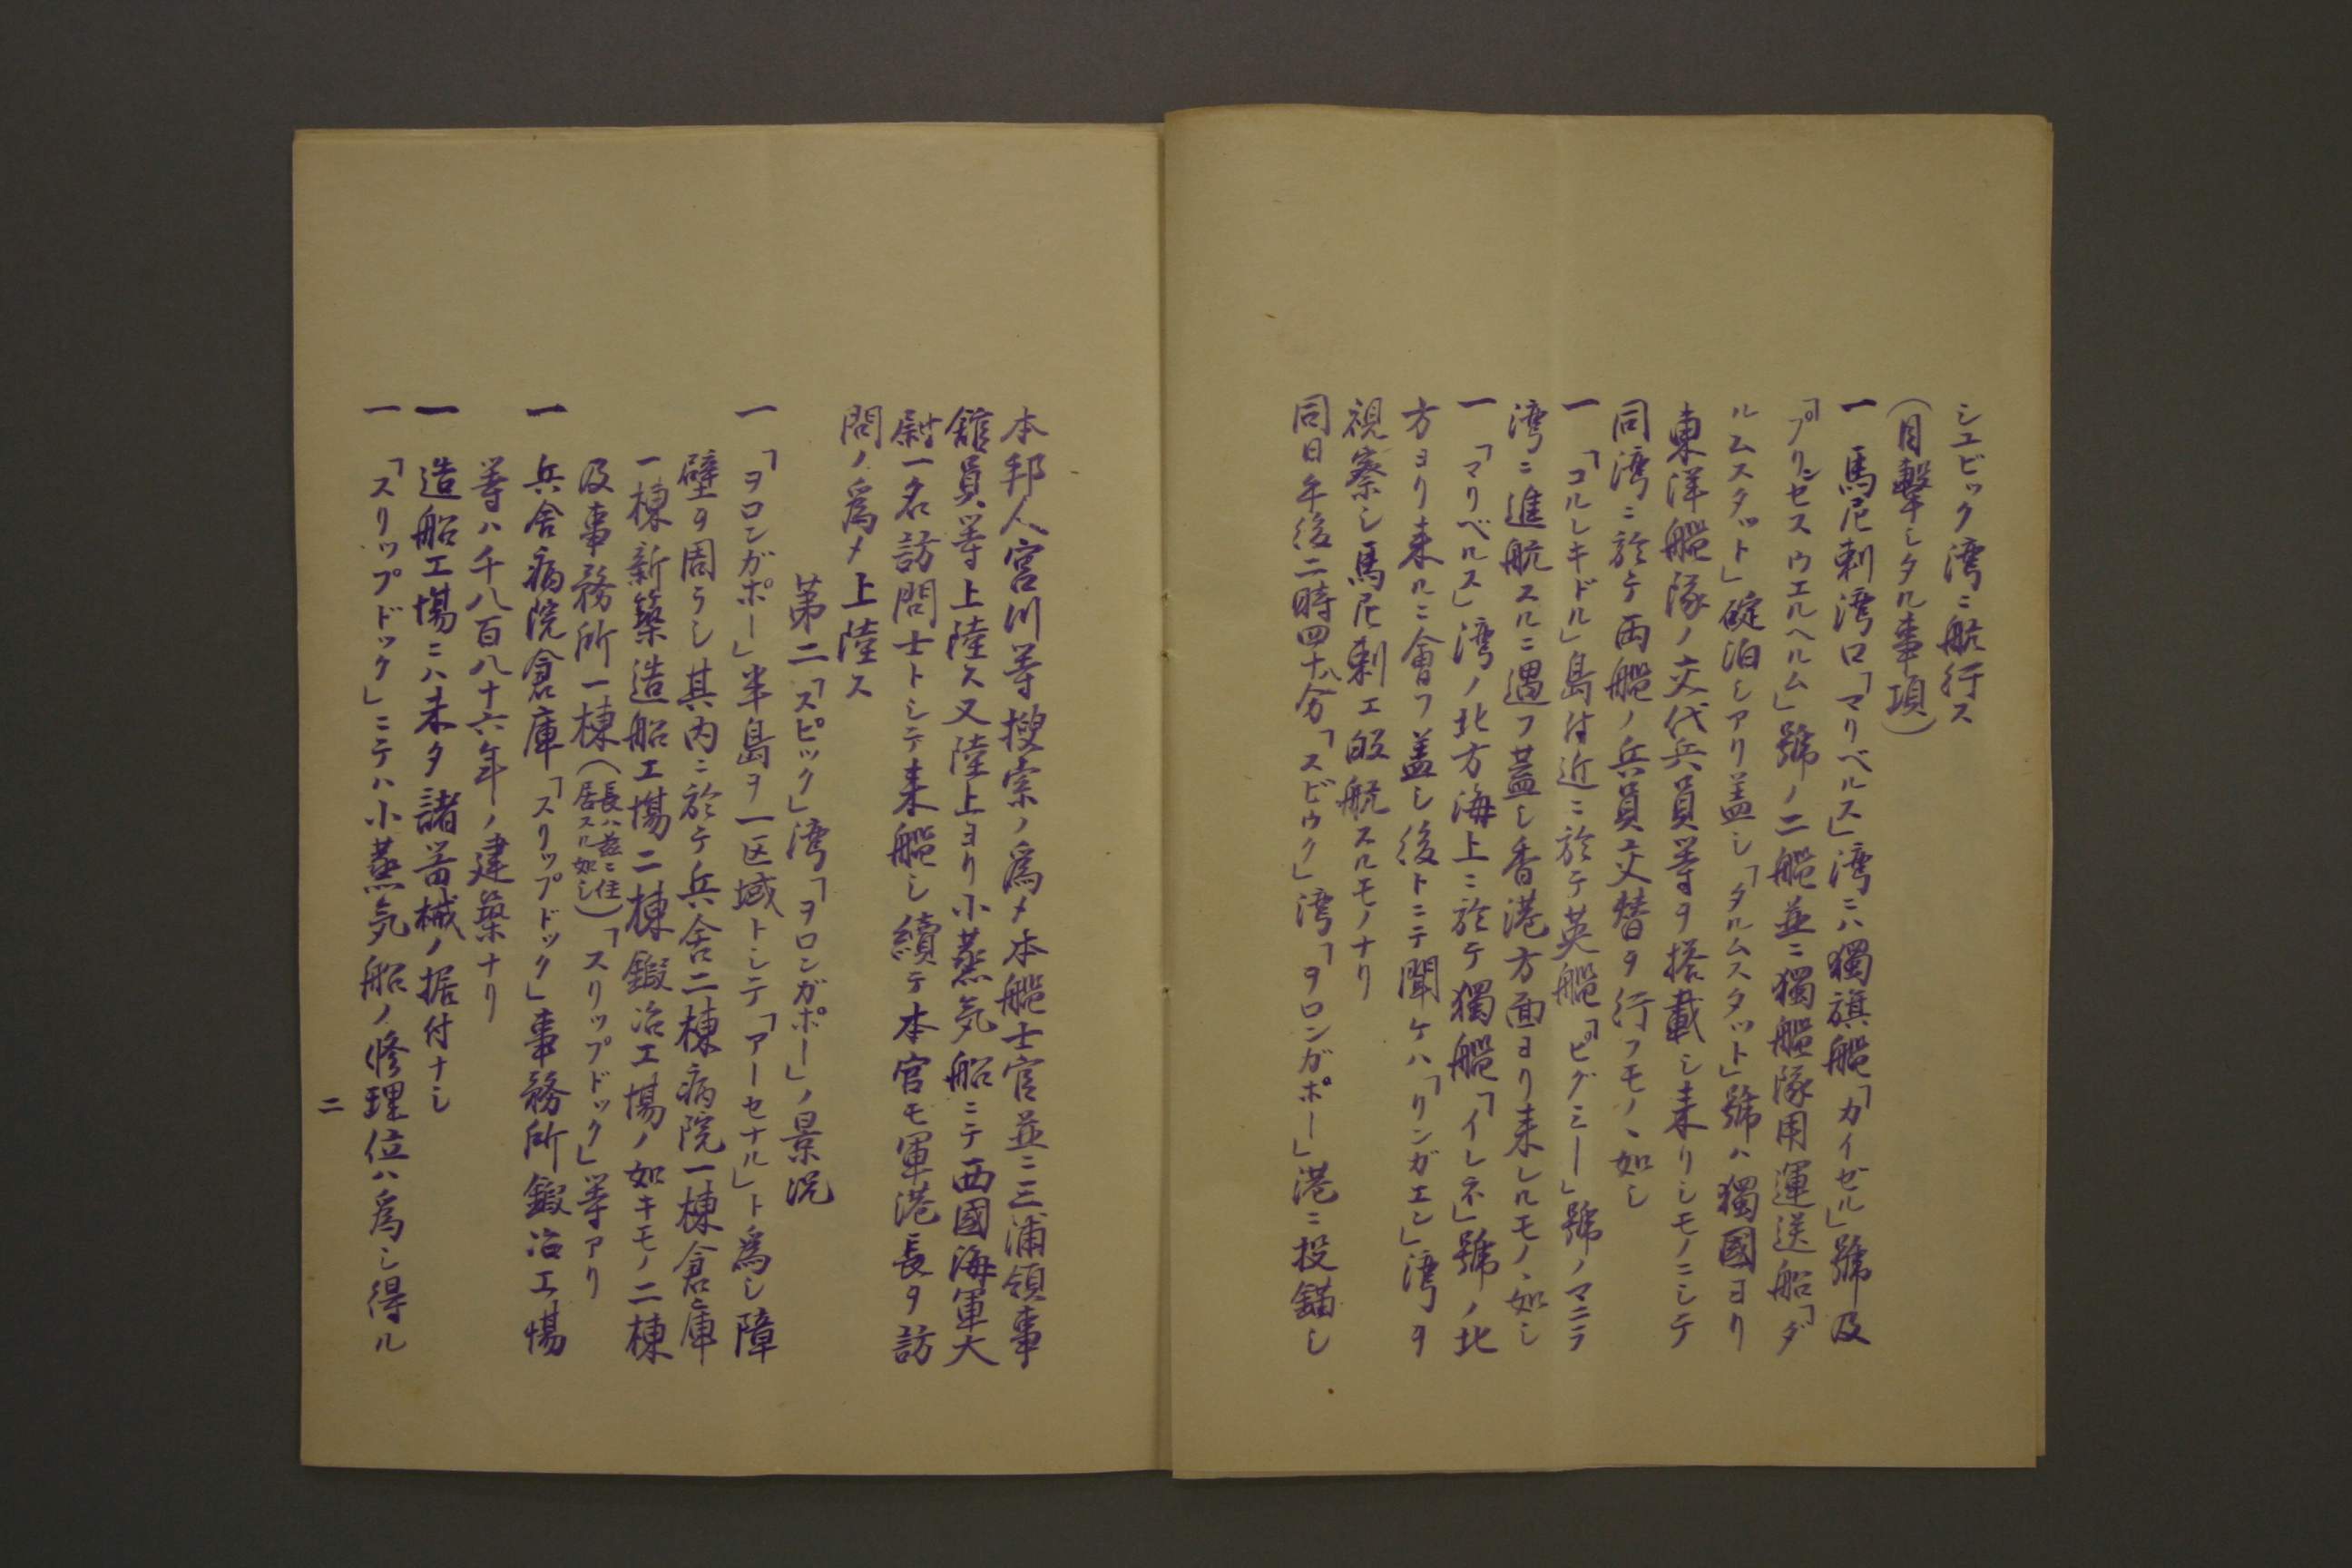 シユビック湾ニ航行ス
(目撃シタル事項)
一 馬尼剌湾口「マリベルス」湾ニハ獨旗艦「カイゼル」號及
「プリンセスウエルヘルム」號ノ二艦並ニ獨艦隊用運送船「ダ
ルムスタット」碇泊シアリ盖シ「タルムスタット」號ハ獨國ヨリ
東洋艦隊ノ交代兵員等ヲ搭載シ来リシモノニシテ
同湾ニ於テ両艦ノ兵員交替ヲ行フモノヽ如シ
一 「コルレキドル」島付近ニ於テ英艦「ピグミー」號ノマニラ
湾ニ進航スルニ遇フ蓋シ香港方面ヨリ来レルモノヽ如シ
一 「マリベルス」湾ノ北方海上ニ於テ獨艦「イレネ」號ノ北
方ヨリ来ルニ會フ盖シ後トニテ聞ケハ「リンガエン」湾ヲ
視察シ馬尼剌エ皈航スルモノナリ
同日午後二時四十八分「スビック」湾「ヲロンガポー」港ニ投錨シ
本邦人宮川等捜索ノ為メ本艦士官並ニ三浦領事
舘員等上陸ス又陸上ヨリ小蒸気船ニテ西國海軍大
尉一名訪問士トシテ来艦シ續テ本官モ軍港長ヲ訪
問ノ為メ上陸ス
第二「スピック」湾「ヲロンガポー」ノ景況
一 「ヲロンガポー」半島ヲ一区域トシテ「アーセナル」ト為シ障
壁ヲ周ラシ其内ニ於テ兵舎二棟病院一棟倉庫
一棟新築造船工場二棟鍛冶工場ノ如キモノ二棟
及事務所一棟(長ハ茲ニ住居スル如シ)「スリップドック」等アリ
一 兵舎病院倉庫「スリップドック」事務所鍛冶工場
等ハ千八百八十六年ノ建築ナリ
一 造船工場ニハ未タ諸器械ノ据付ナシ
一 「スリップドック」ニテハ小蒸気船ノ修理位ハ為シ得ル
二